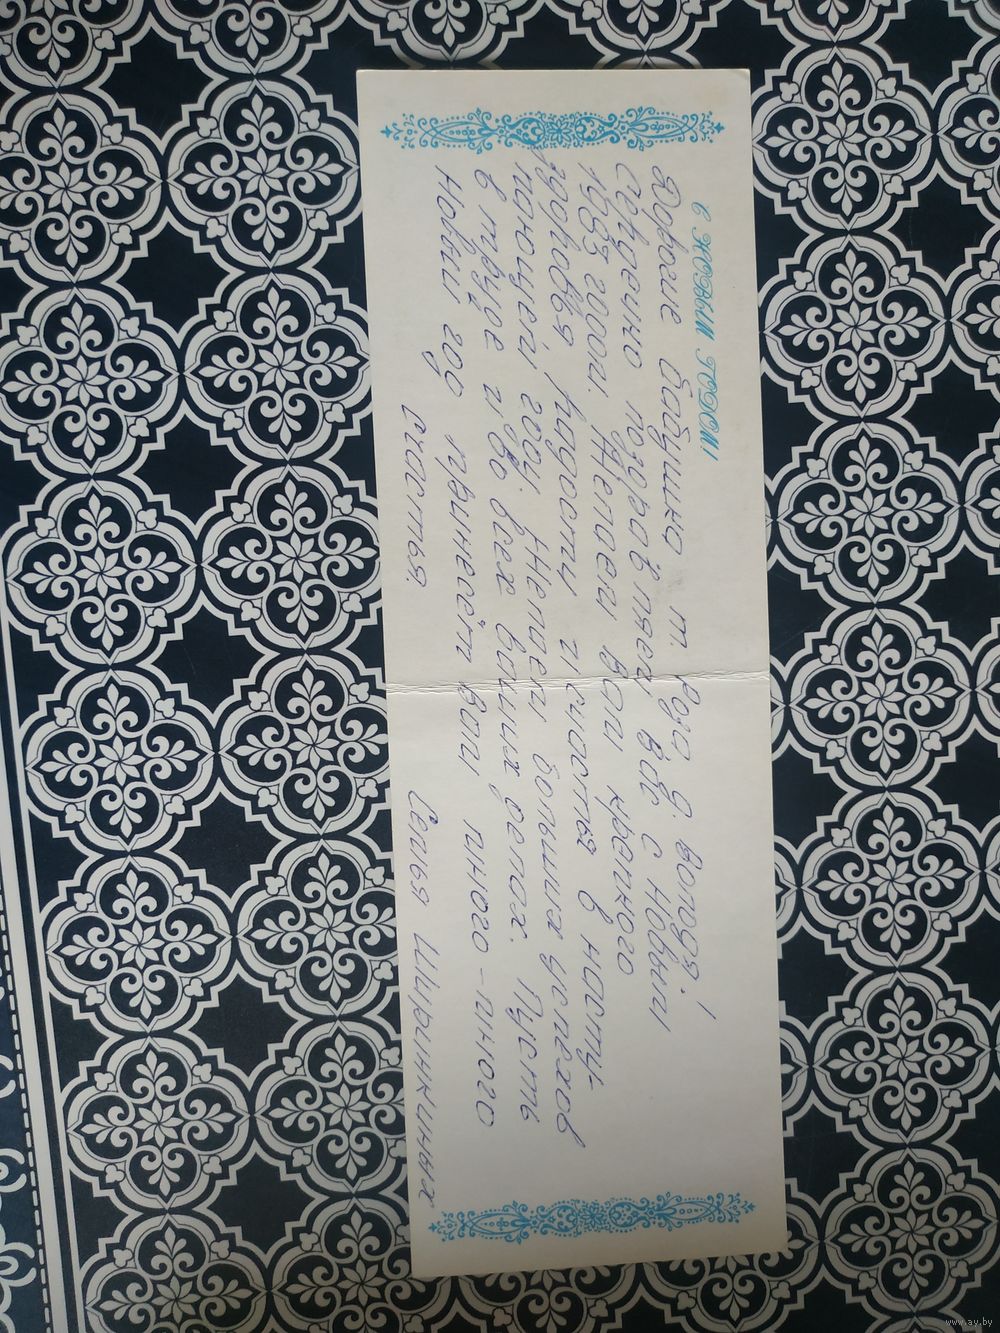 С НОВЫМ ГОДОМ!
Дорогие бабушка, т. Рая, д. Володя!
Сердечно поздравляем Вас с Новым
1983 годом. Желаем Вам крепного
здоровья, радости и счастья в насту-
пающем году. Желаем больших успехов
в труде и во всех ваших делах. Пусть
новый год принесёт вам много-много
счастья
Семья
www.ay.by